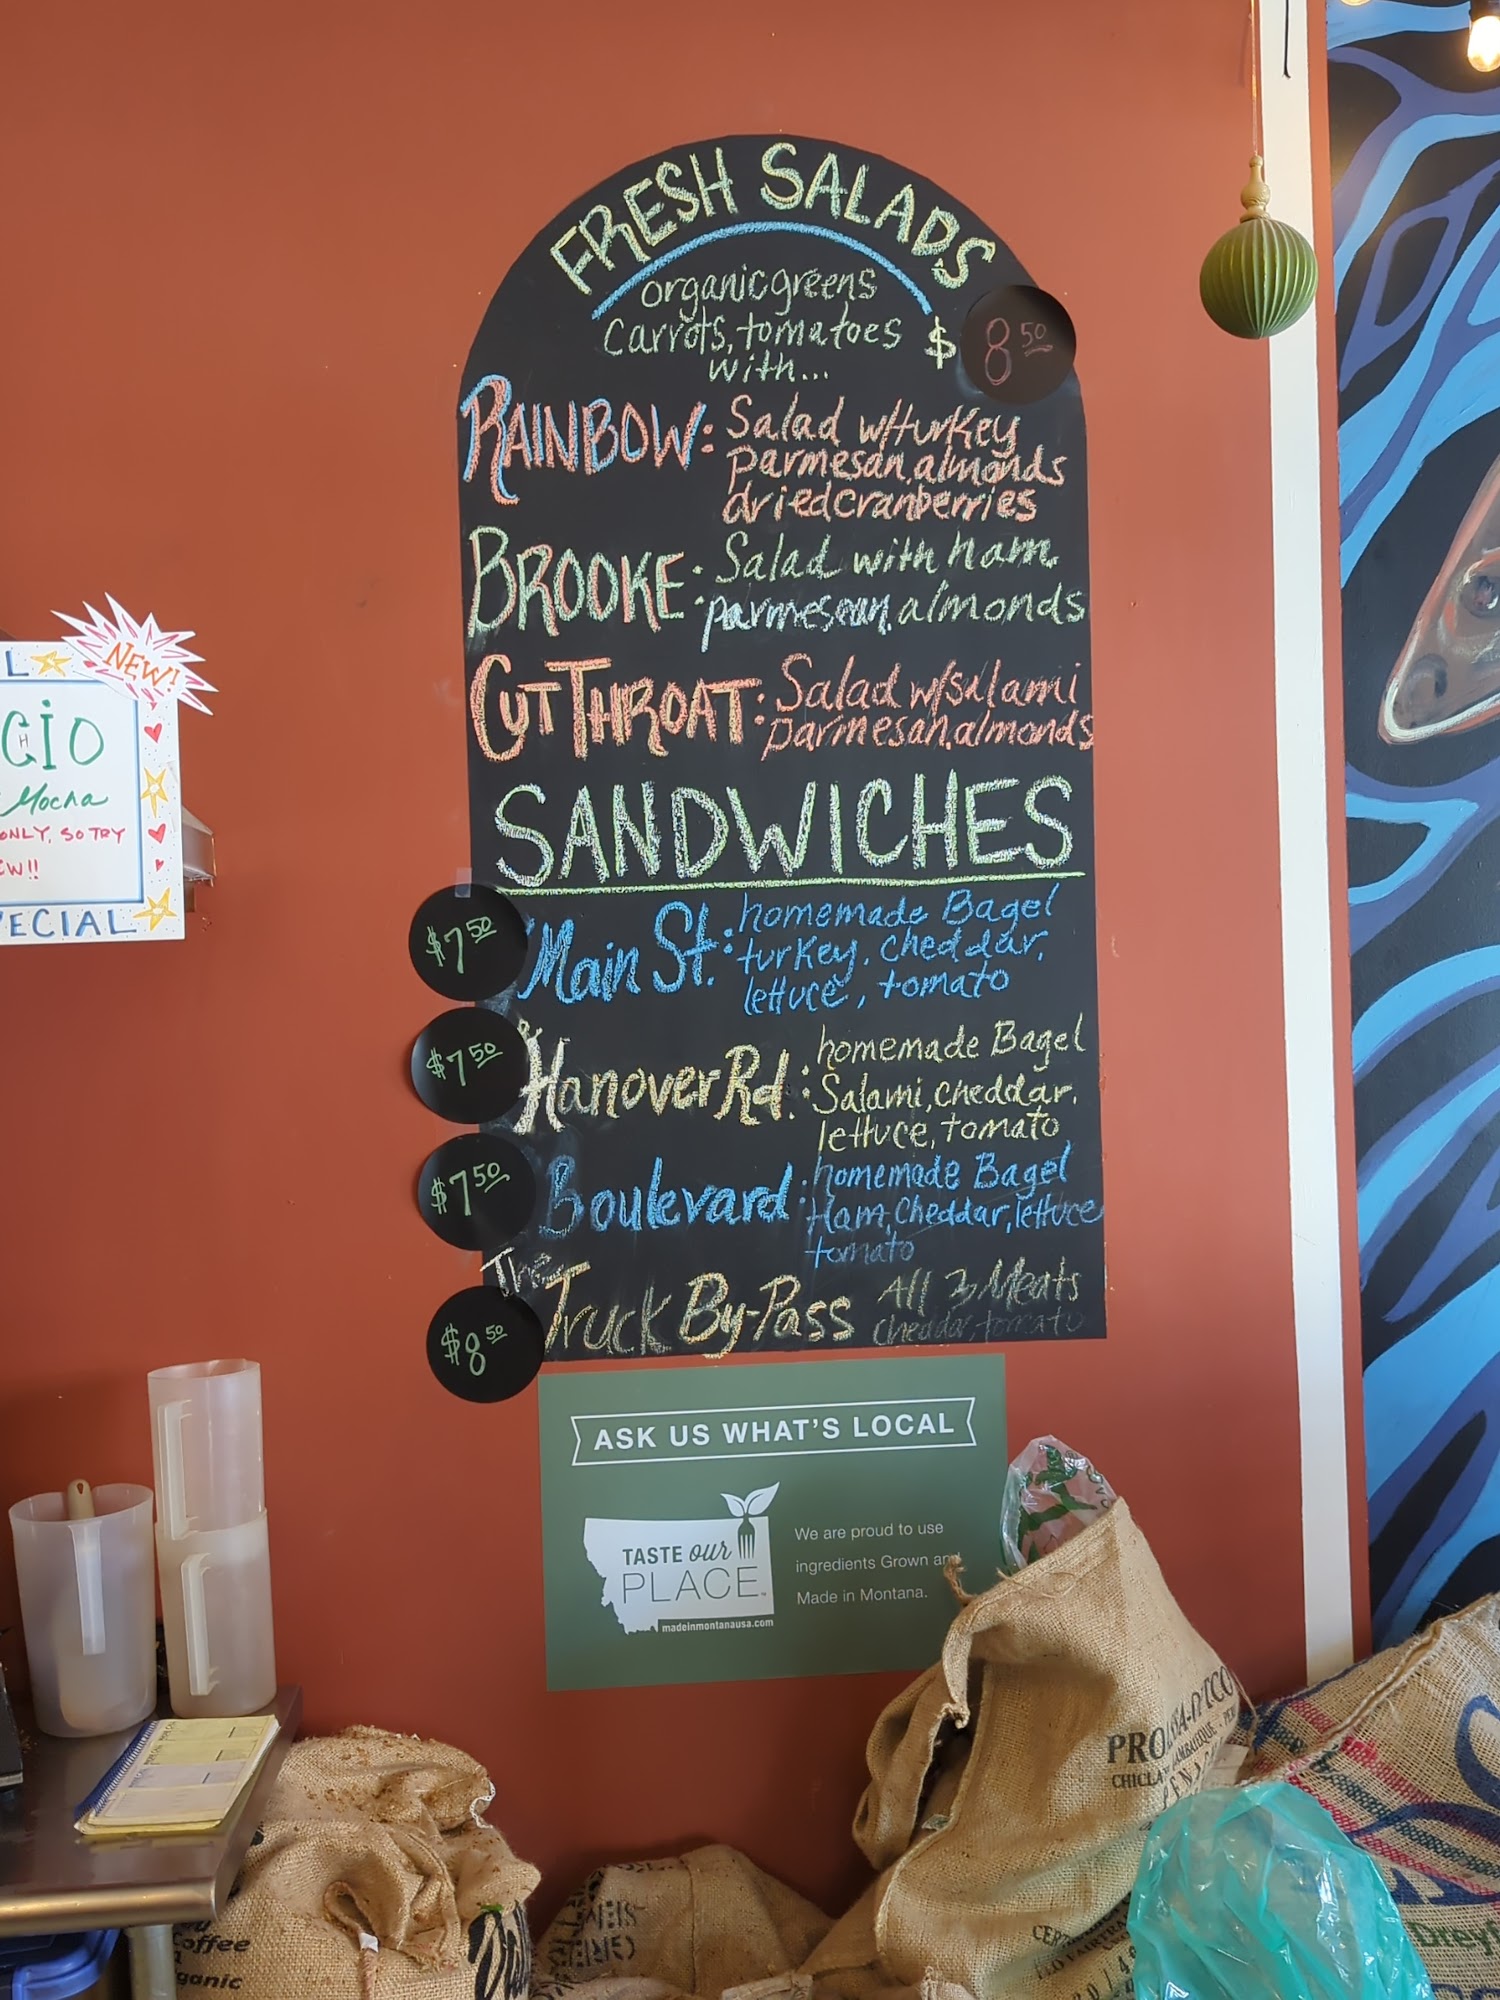 FRESH SALADS
organic greens
carrots, tomatoes
with...
$ 8.50
RAINBOW: Salad w/turkey
parmesan, almonds
dried cranberries
BROOKE: Salad with ham
parmesan, almonds
CUTTHROAT: Salad w/salami
parmesan, almonds
SANDWICHES
$7.50
Main St.: homemade Bagel
turkey, cheddar,
lettuce, tomato
$7.50
Hanover Rd.: homemade Bagel
Salami, cheddar,
lettuce, tomato
$7.50
Boulevard: homemade Bagel
Ham, Cheddar, lettuce
tomato
$8.50
The Truck By-Pass All 3 Meats
cheddar, tomato
NEW!
Mocha
ONLY, SO TRY
ASK US WHAT'S LOCAL
TASTE our
PLACE™
madeinmontanausa.com
We are proud to use
ingredients Grown and
Made in Montana.
organic